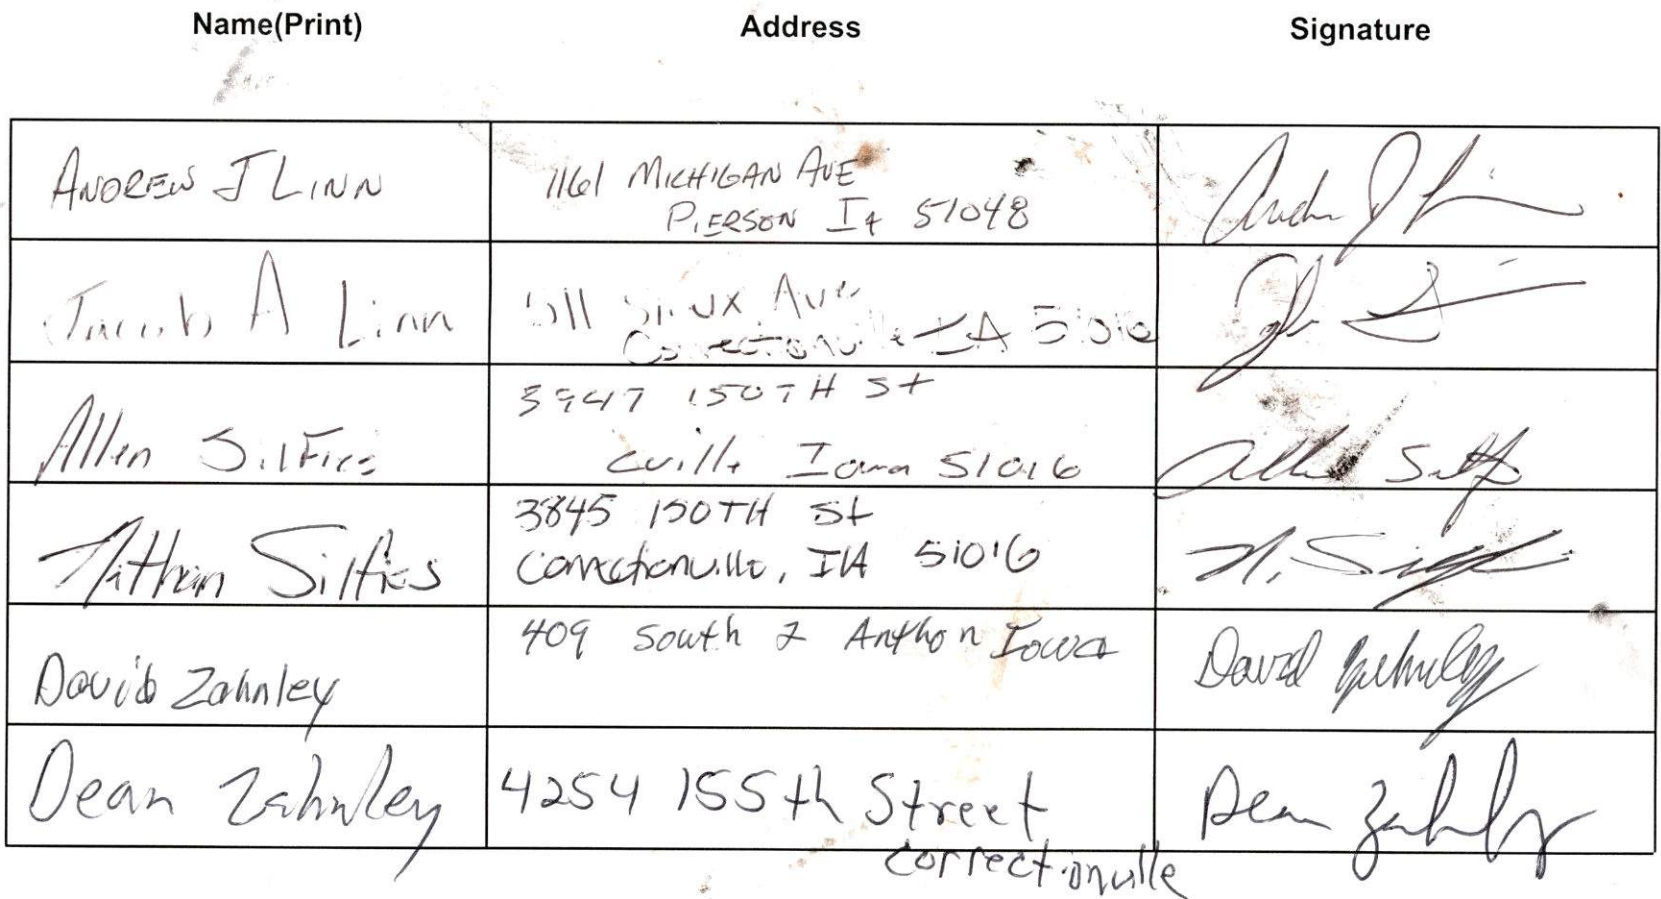 Name(Print) Address Signature
ANDREW J LINN
1161 MICHIGAN AVE
PIERSON IA 51048
Jacob A Linn
511 Sioux Ave
Correctionville IA 51016
Allen Silfies
3947 150TH St
Cville Iowa 51016
Allen Silf
Nathan Silfies
3845 150TH St
Correctionville, IA 51016
N. Silf
David Zahnley
409 South 2 Anthon Iowa
David Zahnley
Dean Zahnley
4254 155th Street
Correctionville
Dean Zahnley